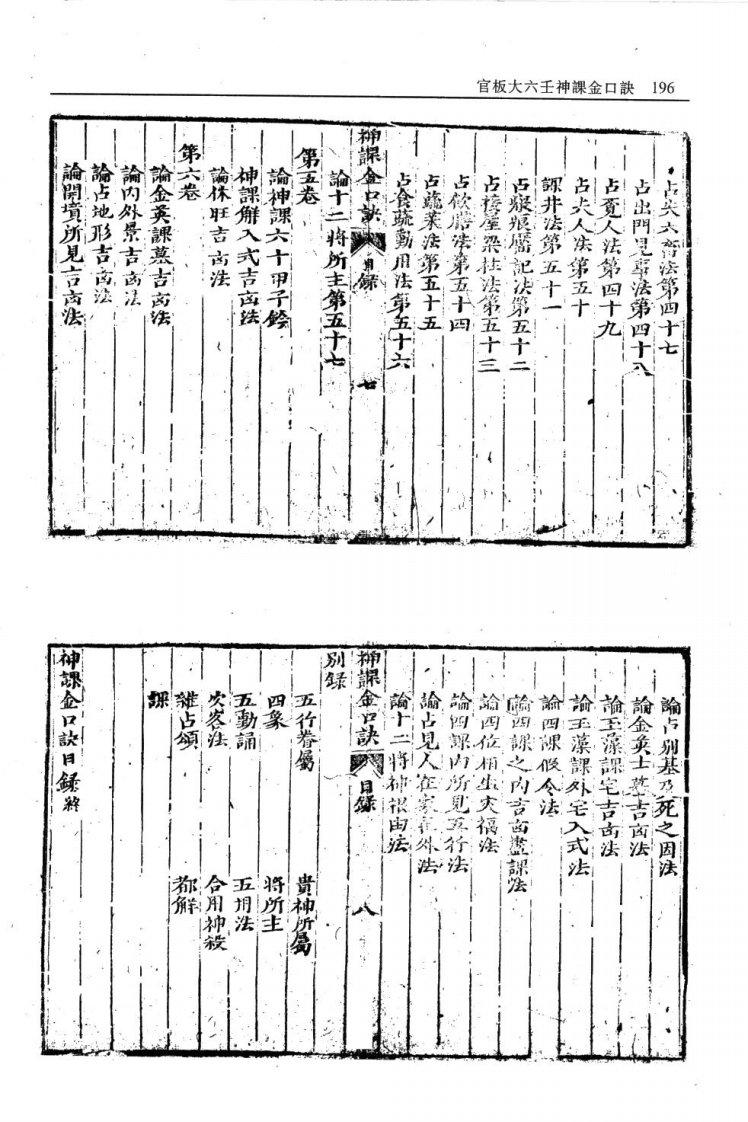 官板大六壬神課金口訣 196
占失六畜法第四十七
占出門見事法第四十八
占覓人法第四十九
占失人法第五十
課井法第五十一
占瘢痕黶記法第五十二
占接屋梁柱法第五十三
占飲膳法第五十四
占蔬菜法第五十五
占食蔬動用法第五十六
神課金口訣 目錄 七
論十二將所主第五十七
第五卷
論神課六十甲子鈐
神課解入式吉凶法
論休旺吉凶法
第六卷
論金英課墓吉凶法
論內外景吉凶法
論占地形吉凶法
論開墳所見吉凶法
論占別基及死之因法
論金英士墓吉凶法
論玉藻課宅吉凶法
論玉藻課外宅入式法
論四課假令法
論四課之內吉凶盡課法
論四位相生災福法
論四課內所見五行法
論占見人在家在外法
論十二將神根由法
神課金口訣 目錄 八
別錄
五行眷屬 貴神所屬
四象 將所主
五動誦 五用法
次客法 合用神殺
雜占頌 都解
課
神課金口訣目錄終